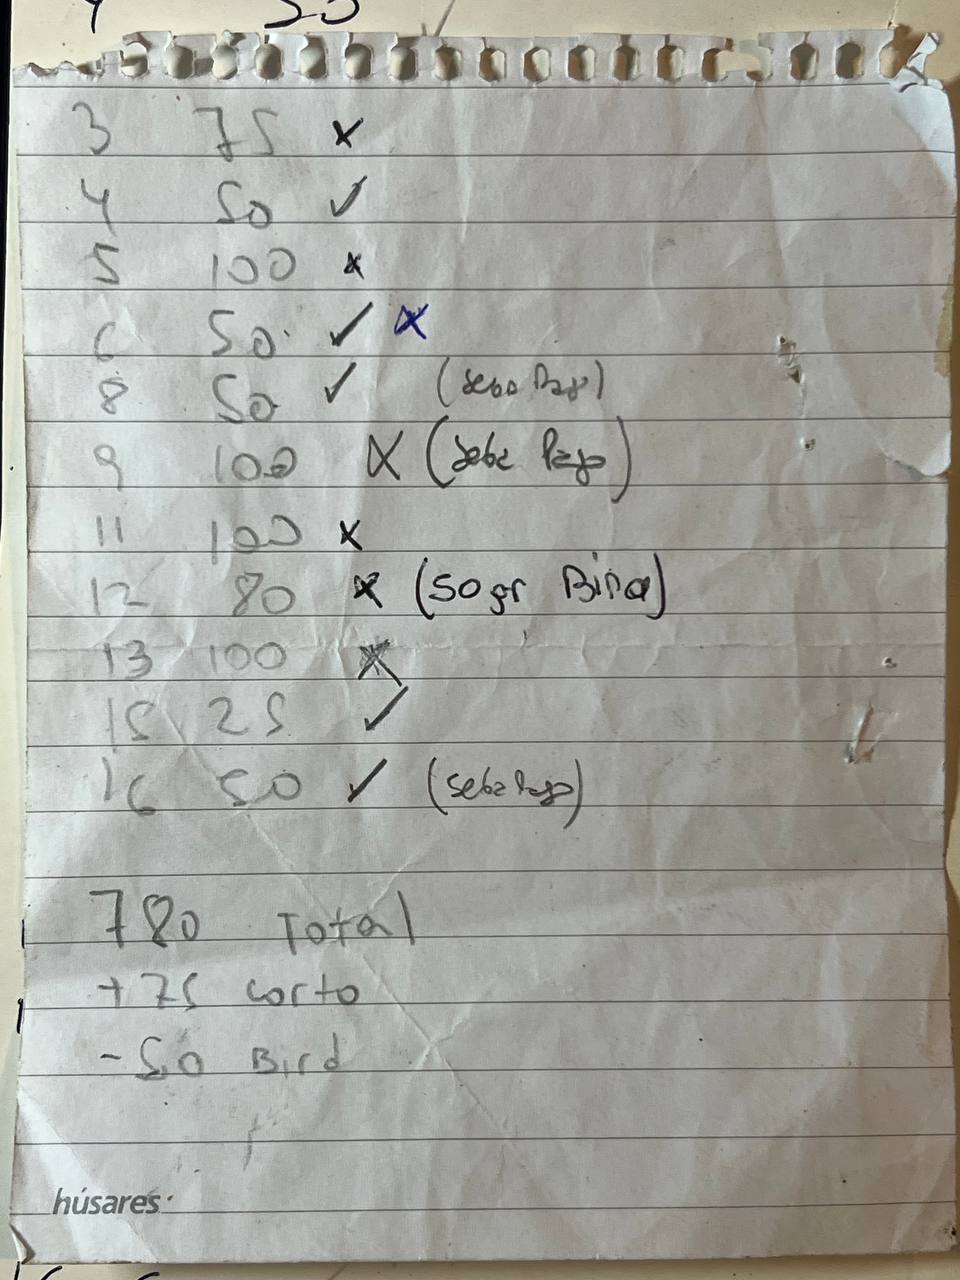 4 50
3 75 x
4 50 ✓
5 100 x
6 50 ✓ x
8 50 ✓ (Seba Pago)
9 100 x (Seba Pago)
11 100 x
12 80 x (50 gr Bira)
13 100 x
15 25 ✓
16 50 ✓ (Seba Pago)
780 Total
+75 corto
-50 Bird
húsares